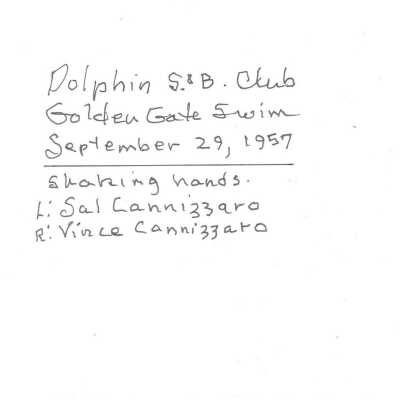 Dolphin S.&B. Club
Golden Gate Swim
September 29, 1957
Shaking hands.
L: Sal Cannizzaro
R: Vince Cannizzaro